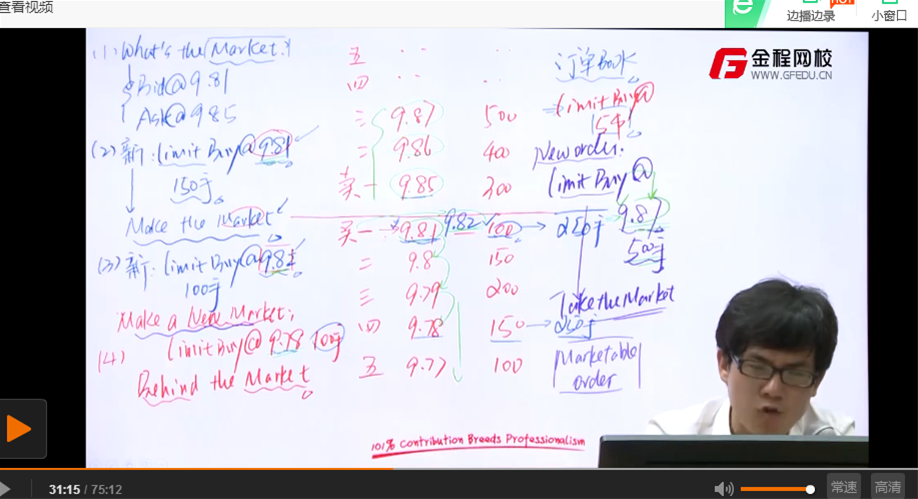 查看视频
边播边录
HOT
小窗口
金程网校
WWW.GFEDU.CN
(1) What's the Market?
Bid@9.81
Ask@9.85
(2) 新: limit Buy@9.81
150手
Make the Market
(3) 新: limit Buy@9.82
100手
Make a New Market:
(4) limit Buy@9.78 100手
Behind the Market
五 .. ..
四 .. ..
三 9.87 500
二 9.86 400
卖一 9.85 300
买一 9.81 9.82 100 → 250手
二 9.8 150
三 9.79 200
四 9.78 150 → 250手
五 9.77 100
订单Book
limit Buy@
15手
New order:
limit Buy@
9.87
500手
Take the Market
Marketable
order
101% Contribution Breeds Professionalism
31:15 / 75:12
常速
高清